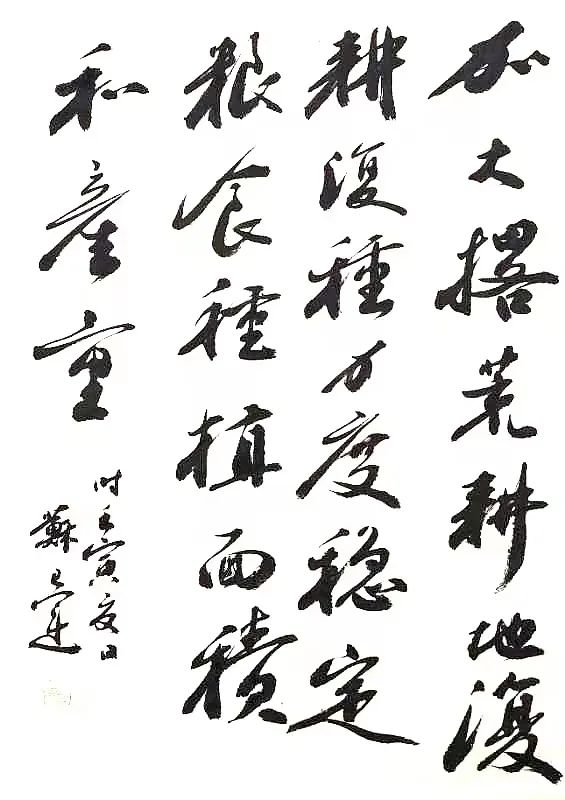 加大撂荒耕地復
耕復種力度稳定
粮食種植面積
和産量
时壬寅夏日
蘇運